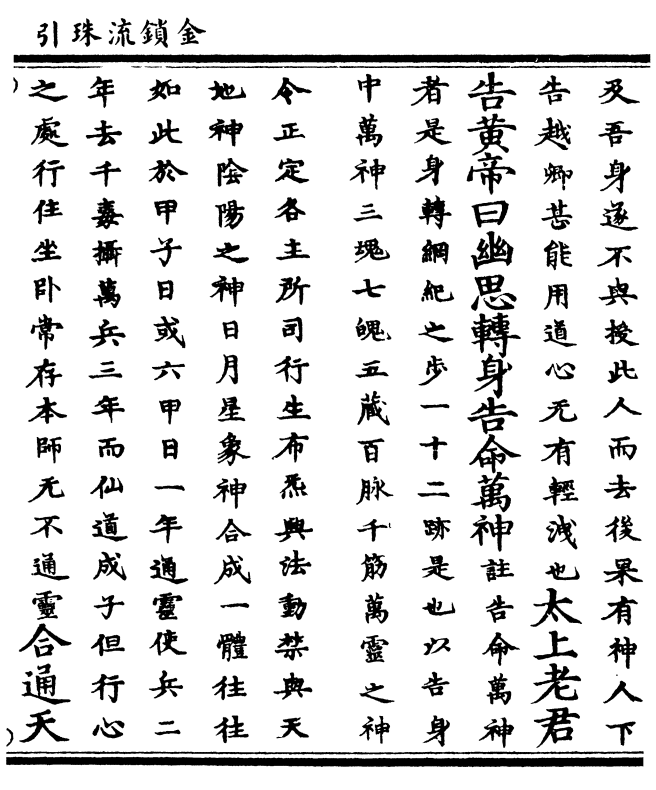 金鎖流珠引
及吾身遂不與授此人而去後果有神人下
告越卿甚能用道心无有輕洩也太上老君
告黃帝曰幽思轉身告命萬神註告命萬神
者是身轉綱紀之步一十二跡是也以告身
中萬神三塊七魄五藏百脉千筋萬靈之神
令正定各主所司行生布炁興法動禁與天
地神陰陽之神日月星象神合成一體往往
如此於甲子日或六甲日一年通靈使兵二
年去千毒攝萬兵三年而仙道成子但行心
之處行住坐卧常存本師无不通靈合通天